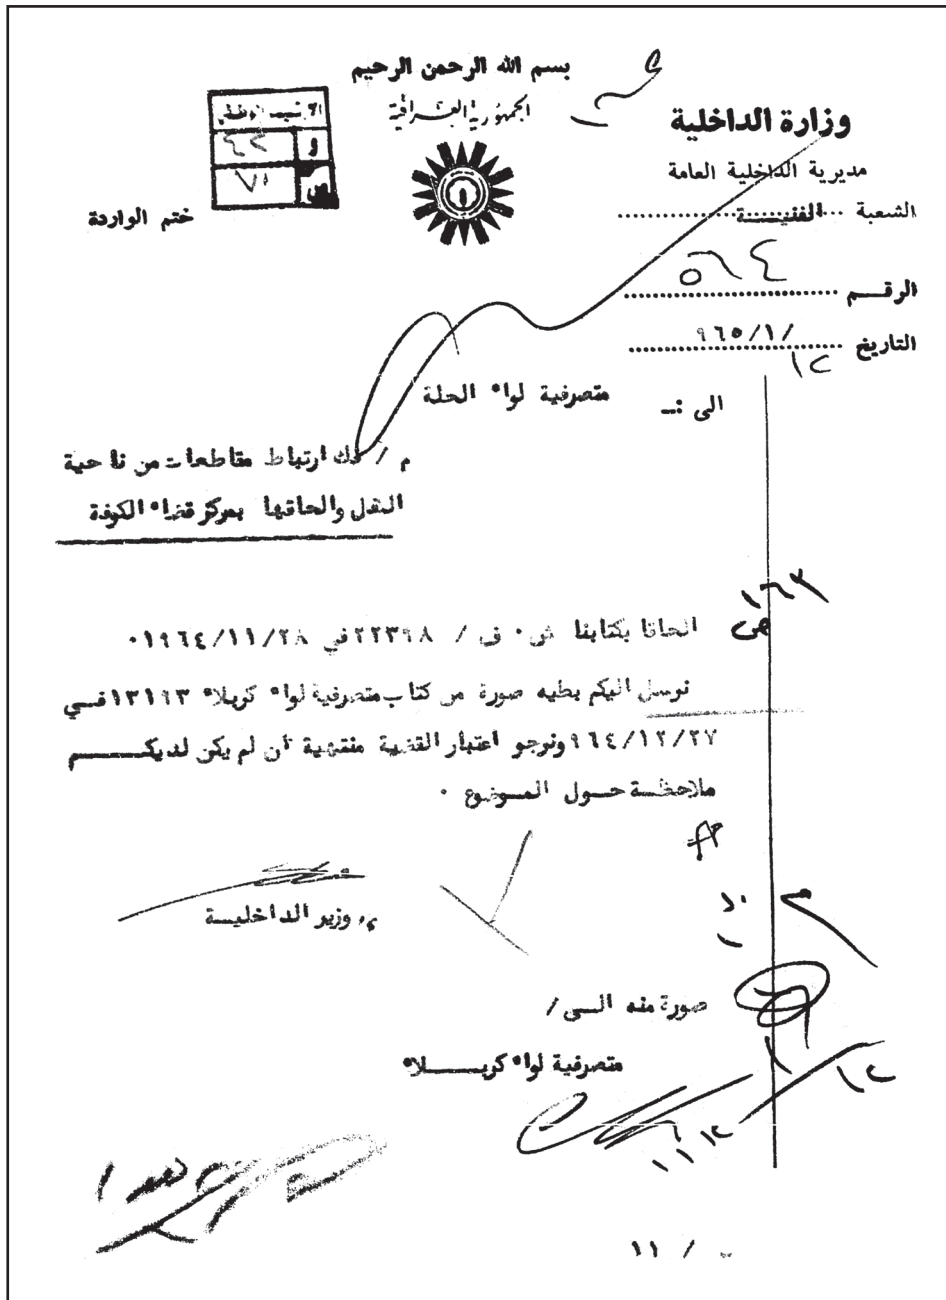 بسم الله الرحمن الرحيم
الجمهورية العراقية
وزارة الداخلية
مديرية الداخلية العامة
الشعبة الفنيـــة
الرقـــم ٥٦٤
التاريخ ١٢/١/٩٦٥
و ٤٢
ص ٧١
ختم الواردة
الى :ـ متصرفية لواء الحلة
م / فك ارتباط مقاطعات من ناحية
الكفل والحاقها بمركز قضاء الكوفة
الحاقا بكتابنا ش٠ ف / ٢٢٣٩٨ في ١٩٦٤/١١/٢٨٠
نرسل اليكم بطيه صورة من كتاب متصرفية لواء كربلاء ١٣١٩٣ فـــي
٩٦٤/١٢/٢٧ ونرجو اعتبار القضية منتهية أن لم يكن لديكـــــم
ملاحظـــة حـــول المـــوضوع ٠
وزير الداخليـــة
صورة منه الـــى /
متصرفية لواء كربـــــلاء
١١ /